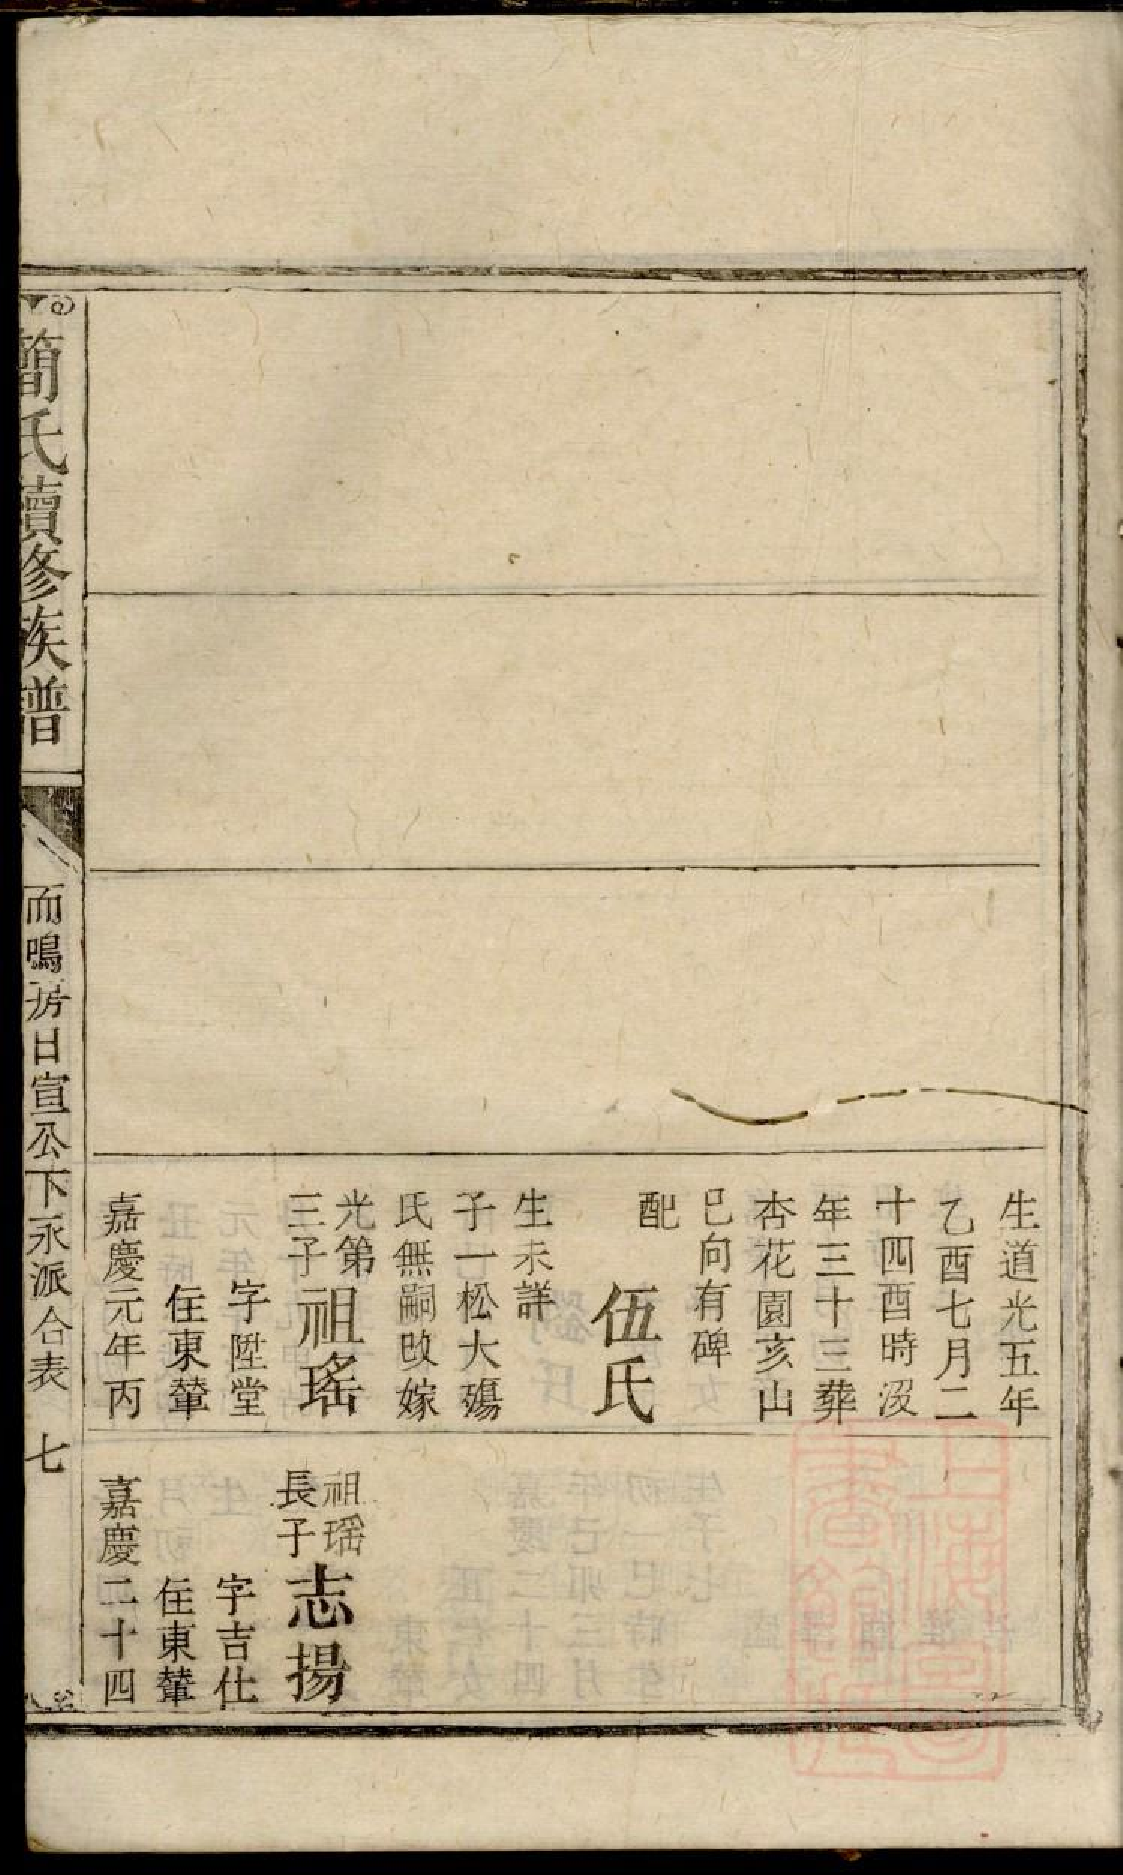 生道光五年
乙酉七月二
十四酉時沒
年三十三葬
杏花園亥山
巳向有碑
配
伍氏
生未詳
子一松大殤
氏無嗣改嫁
光第
三子
祖瑤
字陞堂
住東輦
嘉慶元年丙
祖瑤
長子
志揚
字吉仕
住東輦
嘉慶二十四
簡氏續修族譜
而鳴房日宣公下永派合表 七